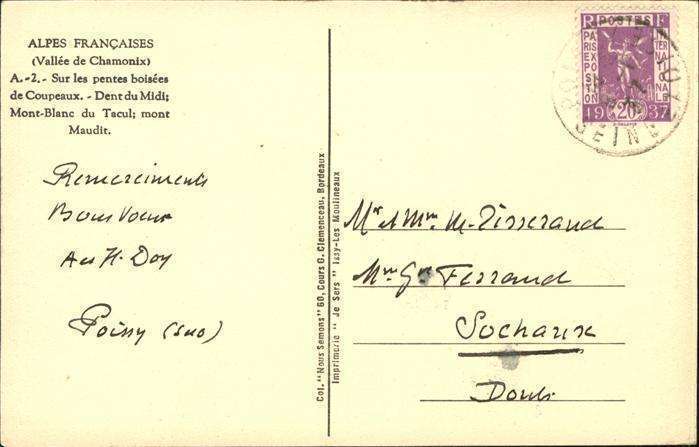 ALPES FRANÇAISES
(Vallée de Chamonix)
A.-2.- Sur les pentes boisées
de Coupeaux. - Dent du Midi;
Mont-Blanc du Tacul; mont
Maudit.
Remerciments
Bons Voeux
Poissy
Col. "Nous Semons" 60, Cours G. Clemenceau, Bordeaux
Imprimerie "Je Sers" Issy-Les Moulineaux
RF
POSTES
PARIS EXPOSITION
INTERNATIONALE
1937
20
SEINE
Mr et Mme M. Tisserand
Ferrand
Sochaux
Doubs